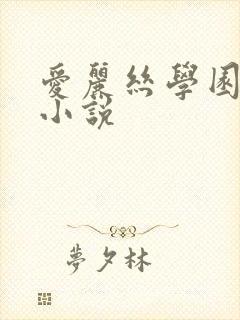 愛麗絲學園
小說
夢夕林